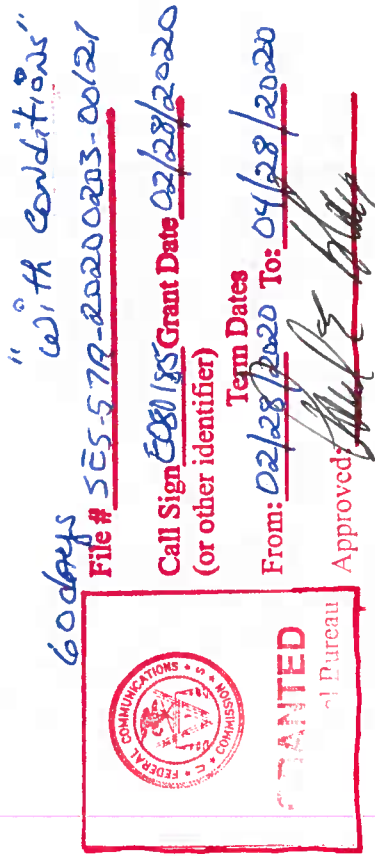 60 days "with conditions"
File # SES-STA-20200203-00121
Call Sign E080185 Grant Date 02/28/2020
(or other identifier)
Term Dates
From: 02/28/2020 To: 04/28/2020
Approved:
FEDERAL COMMUNICATIONS COMMISSION
GRANTED
al Bureau